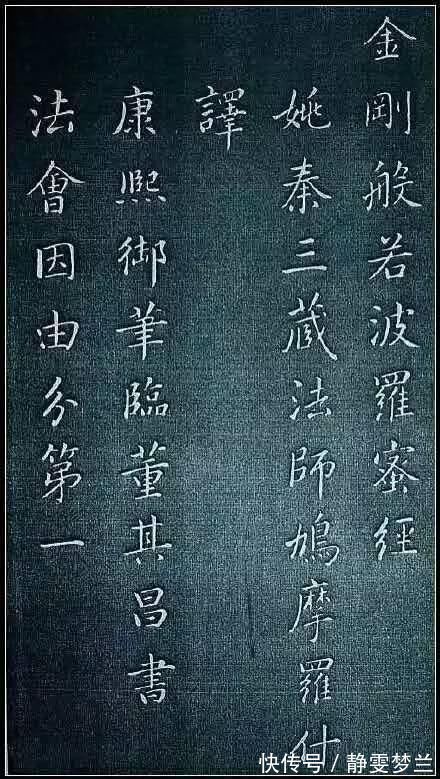 金剛般若波羅蜜經
姚秦三藏法師鳩摩羅什
譯
康熙御筆臨董其昌書
法會因由分第一
快传号/静雯梦兰